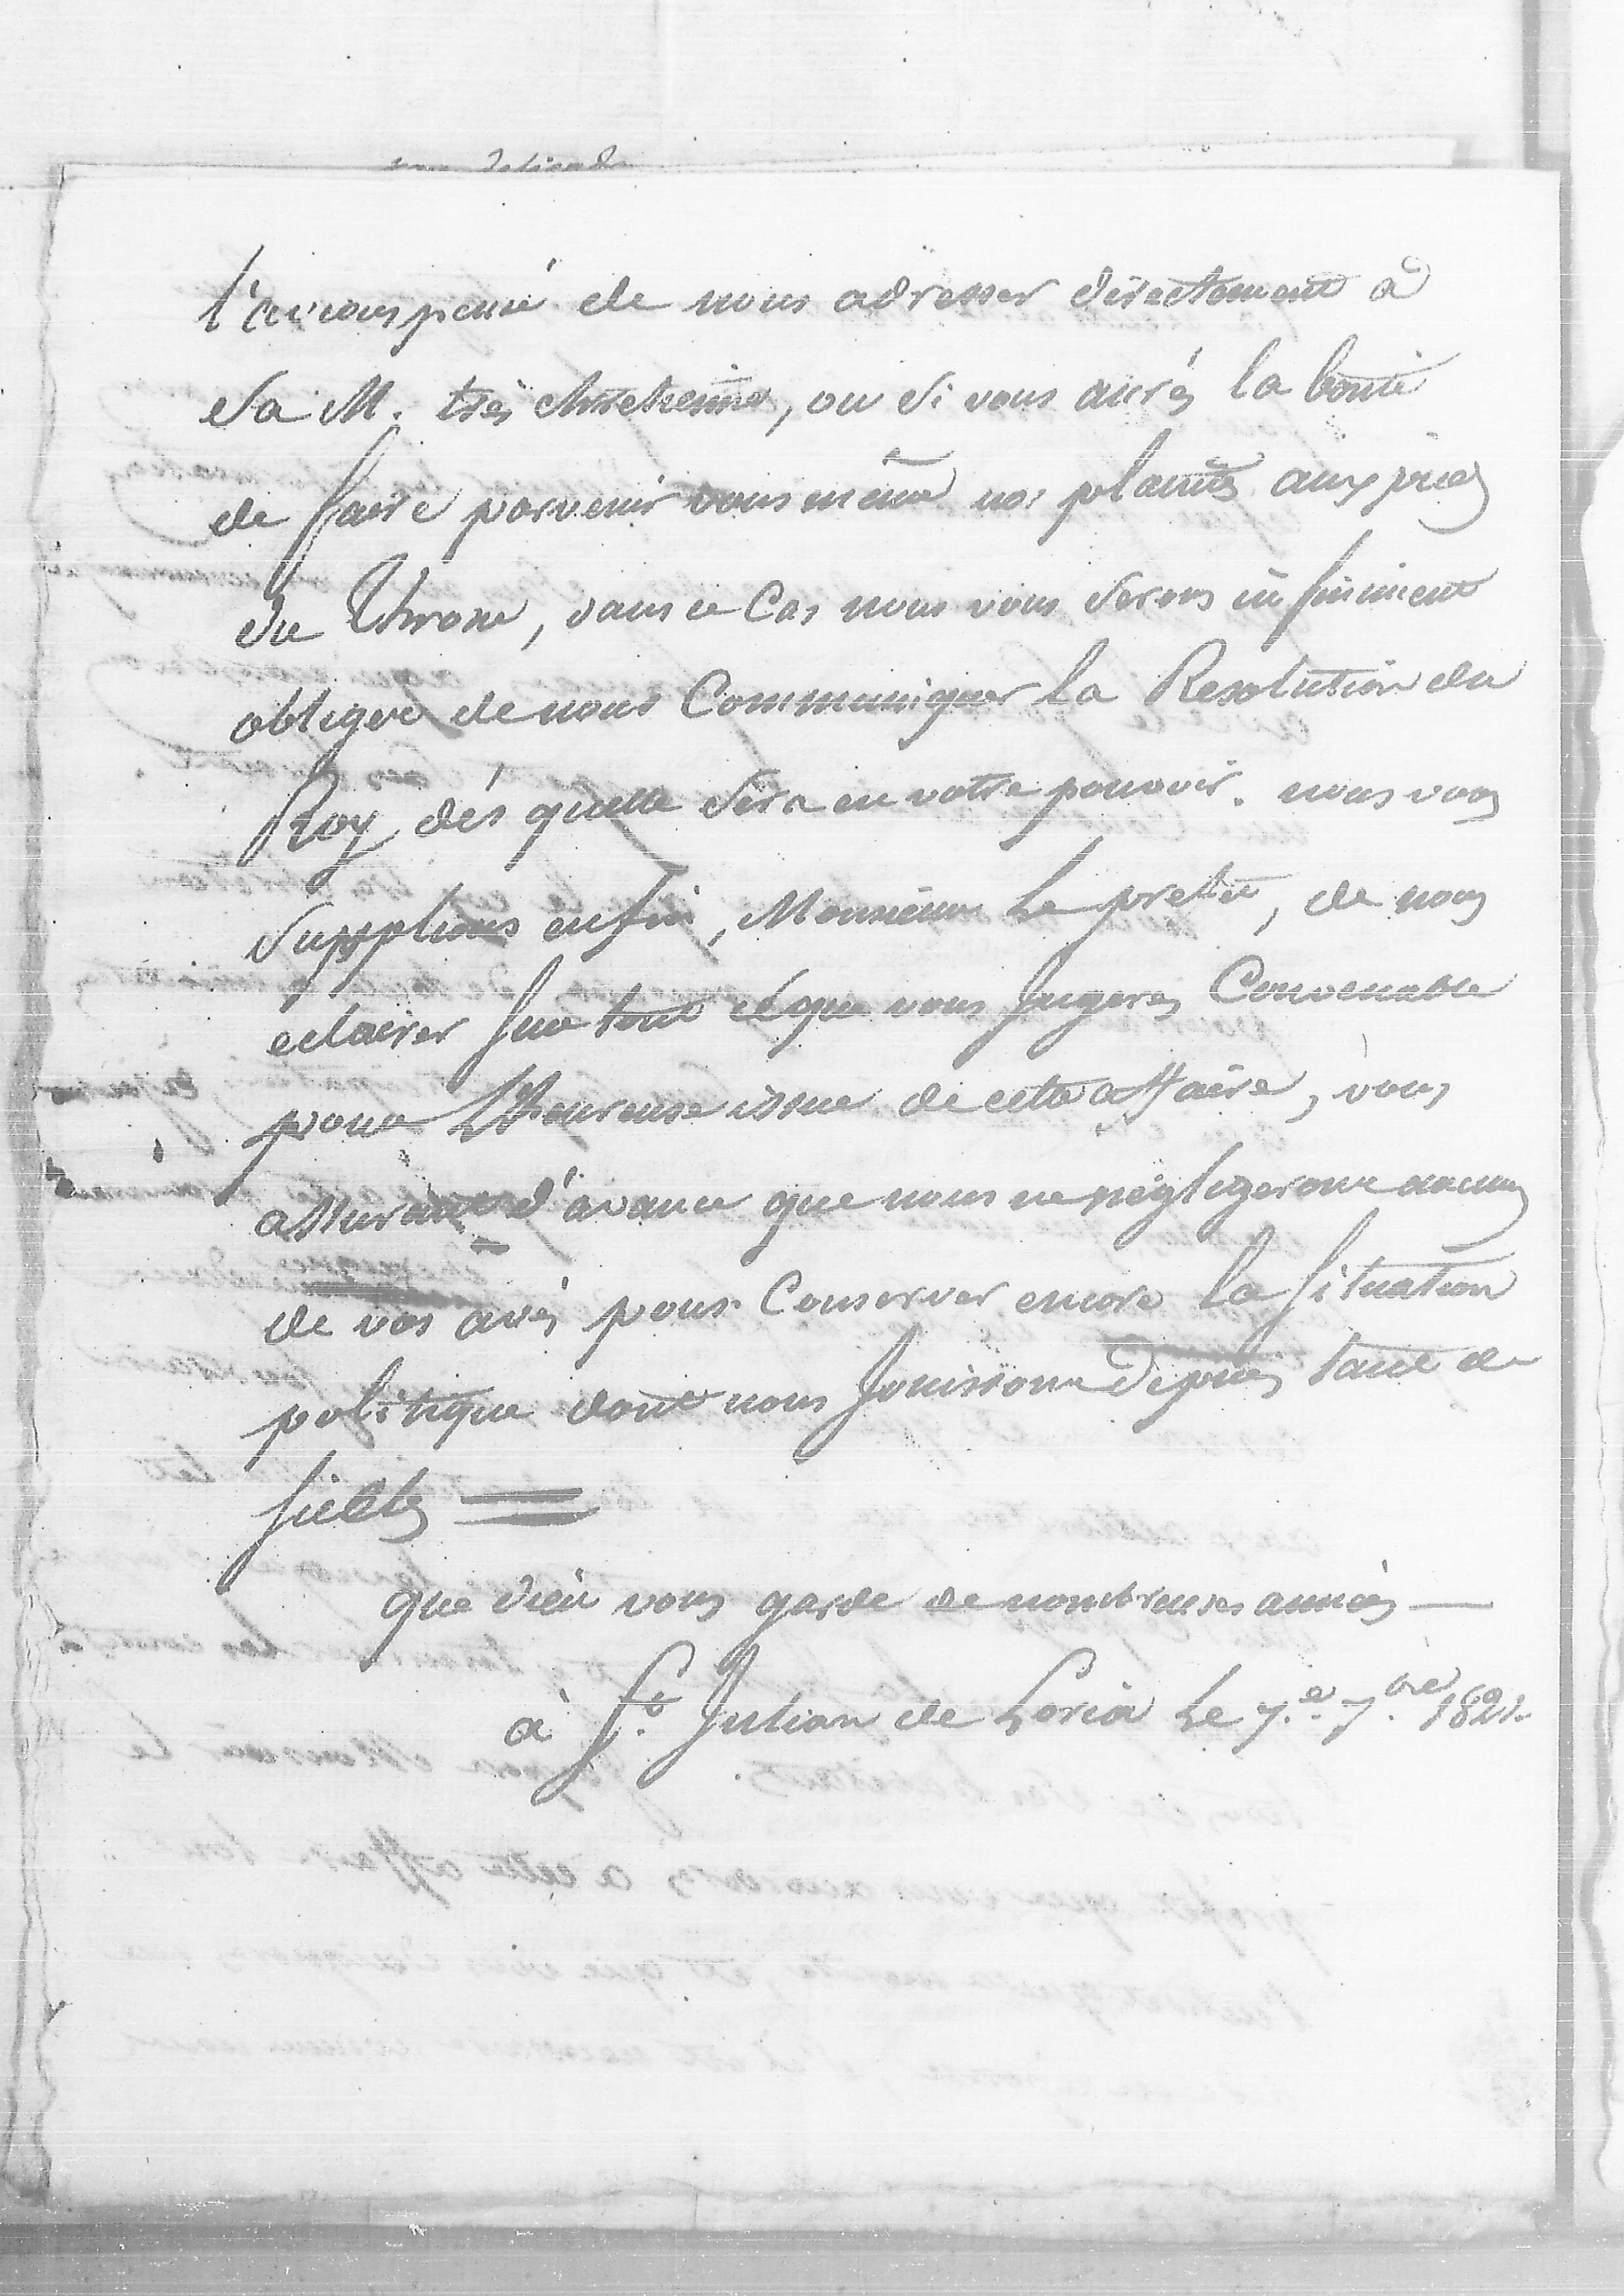 l'avions pensé de nous adresser directement à
Sa M. très chretienne, ou si vous aurés la bonté
de faire parvenir vous même nos plaintes aux pieds
du Throne, dans ce Cas nous vous serons infiniment
obligés de nous Communiquer la Resolution du
Roy dés quelle sera en votre pouvoir. nous vous
supplions enfin, Monsieur Le prefet, de nous
eclairer sur tout ce que vous Jugerez Convenable
pour L'heureuse issue de cette affaire, vous
assurant d'avance que nous ne négligerons aucun
de vos avis pour Conserver encore la situation
politique dont nous Jouissons Depuis tant de
siecles =
que dieu vous garde de nombreuses années —
à St. Julian de Loria Le 7.e 7.bre 1821.